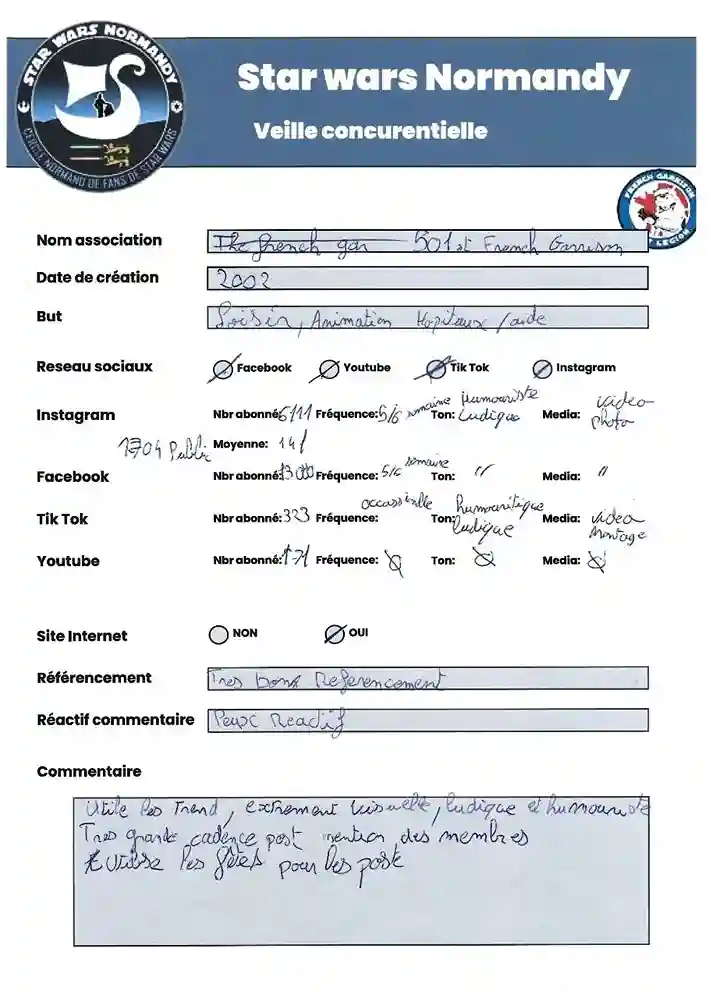 STAR WARS NORMANDY
CERCLE NORMAND DE FANS DE STAR WARS
Star wars Normandy
Veille concurentielle
FRENCH GARRISON
LEGION
Nom association The french gar 501st French Garrison
Date de création 2002
But Loisir, Animation Hopitaux /aide
Reseau sociaux Facebook Youtube Tik Tok Instagram
Instagram Nbr abonné: 6111 Fréquence: 5/6 semaine Ton: Humouriste Ludique Media: video photo
1704 Public Moyenne: 141
Facebook Nbr abonné: Fréquence: 5/6 semaine Ton: " Media: "
Tik Tok Nbr abonné: 323 Fréquence: Ton: ludique Media: video Montage
Youtube Nbr abonné: Fréquence: Ton: Media:
Site Internet NON OUI
Référencement Tres bons Referencement
Réactif commentaire Peux Reactif
Commentaire
Utile les Trend, extrement visuelle, ludique et humouriste
Tres grande cadence post mention des membres
Utilise les fêtes pour les post